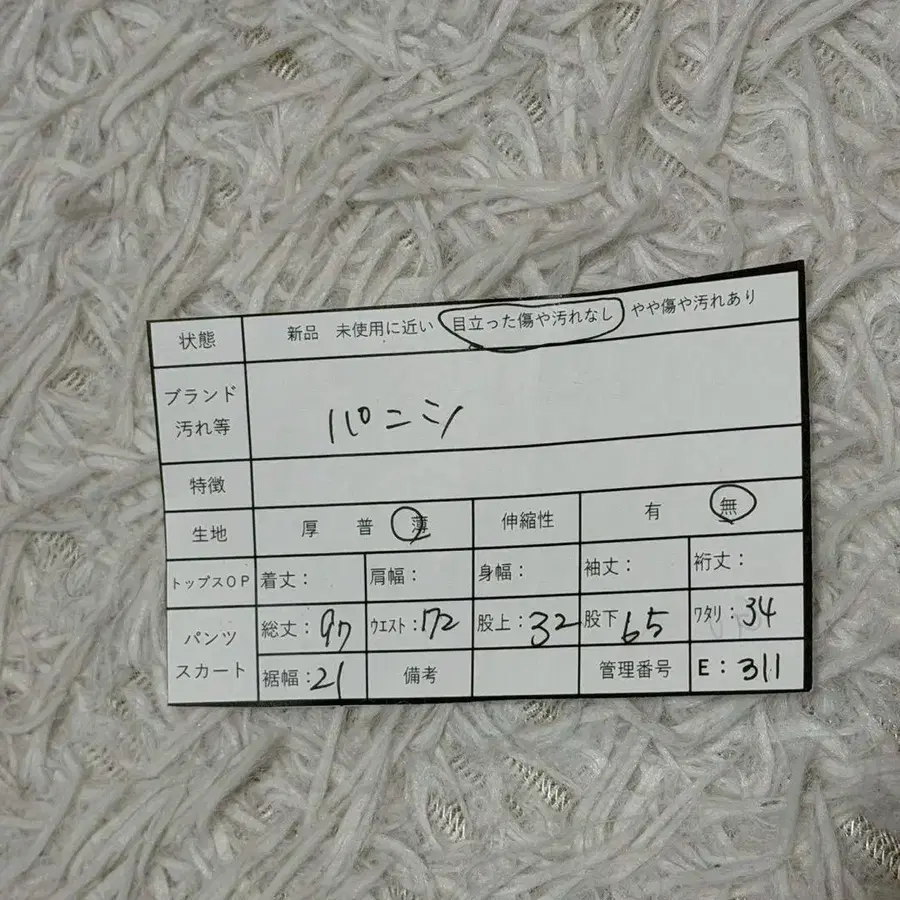 状態 新品 未使用に近い 目立った傷や汚れなし やや傷や汚れあり
ブランド
汚れ等
パンミシ
特徴
生地 厚 普 薄 伸縮性 有 無
トップスOP 着丈: 肩幅: 身幅: 袖丈: 裄丈:
パンツ
スカート
総丈: 97 ウエスト: 72 股上: 32 股下 65 ワタリ: 34
裾幅: 21 備考 管理番号 E: 311